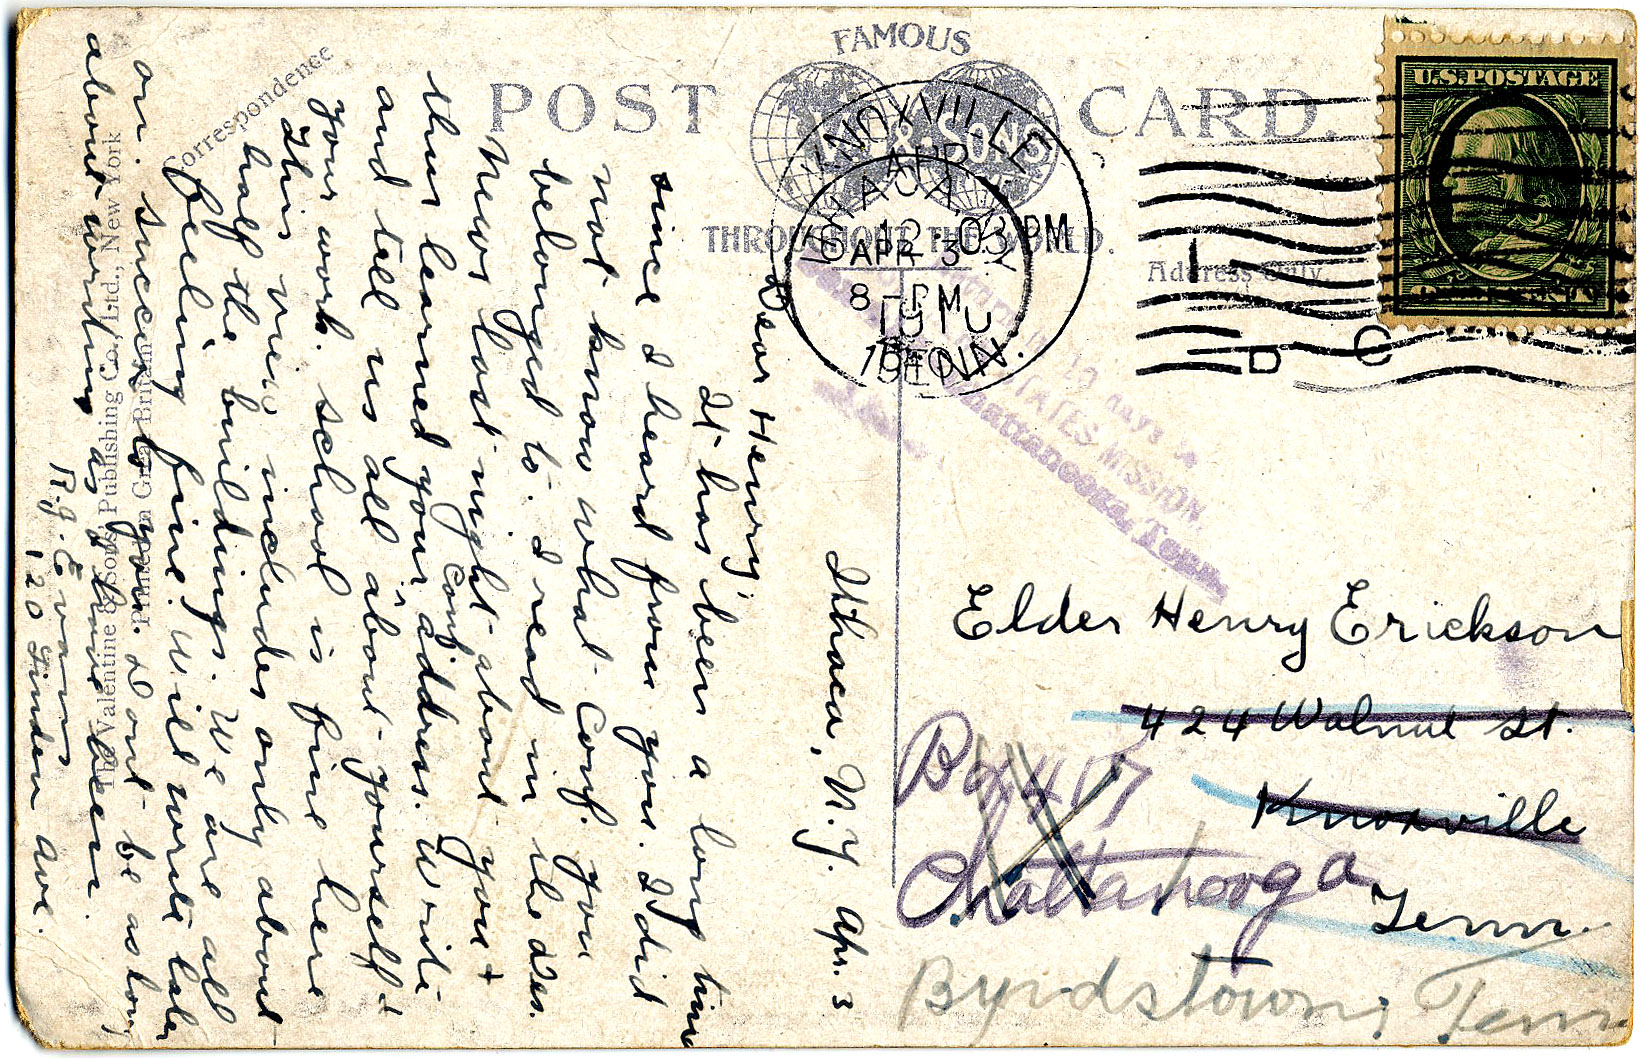 FAMOUS
POST CARD.
V & SONS
THROUGHOUT THE WORLD.
Correspondence
Address Only
U.S.POSTAGE
KNOXVILLE
APR
12
03 PM
1910
TENN.
ITHACA
APR 3
8-PM
1910
N.Y.
D C
10 days to
STATES MISSION,
Chattanooga, Tenn.
Ithaca, N.Y. Apr. 3
Dear Henry,
It has been a long time
since I heard from you. I did
not know what Conf. you
belonged to. I read in the Des.
News last night about you +
Conf.
thus learned your address. Write
and tell us all about yourself &
your work. School is fine here
This view includes only about
half the buildings. We are all
feeling fine. Will write later
on. Success to you. Dont be as long
about writing as I have been.
R.J. Evans
120 Linden Ave.
The Valentine & Sons Publishing Co., Ltd., New York
Printed in Great Britain
Elder Henry Erickson
424 Walnut St.
Knoxville
Tenn.
Box 417
Chattanooga
Byrdstown, Tenn